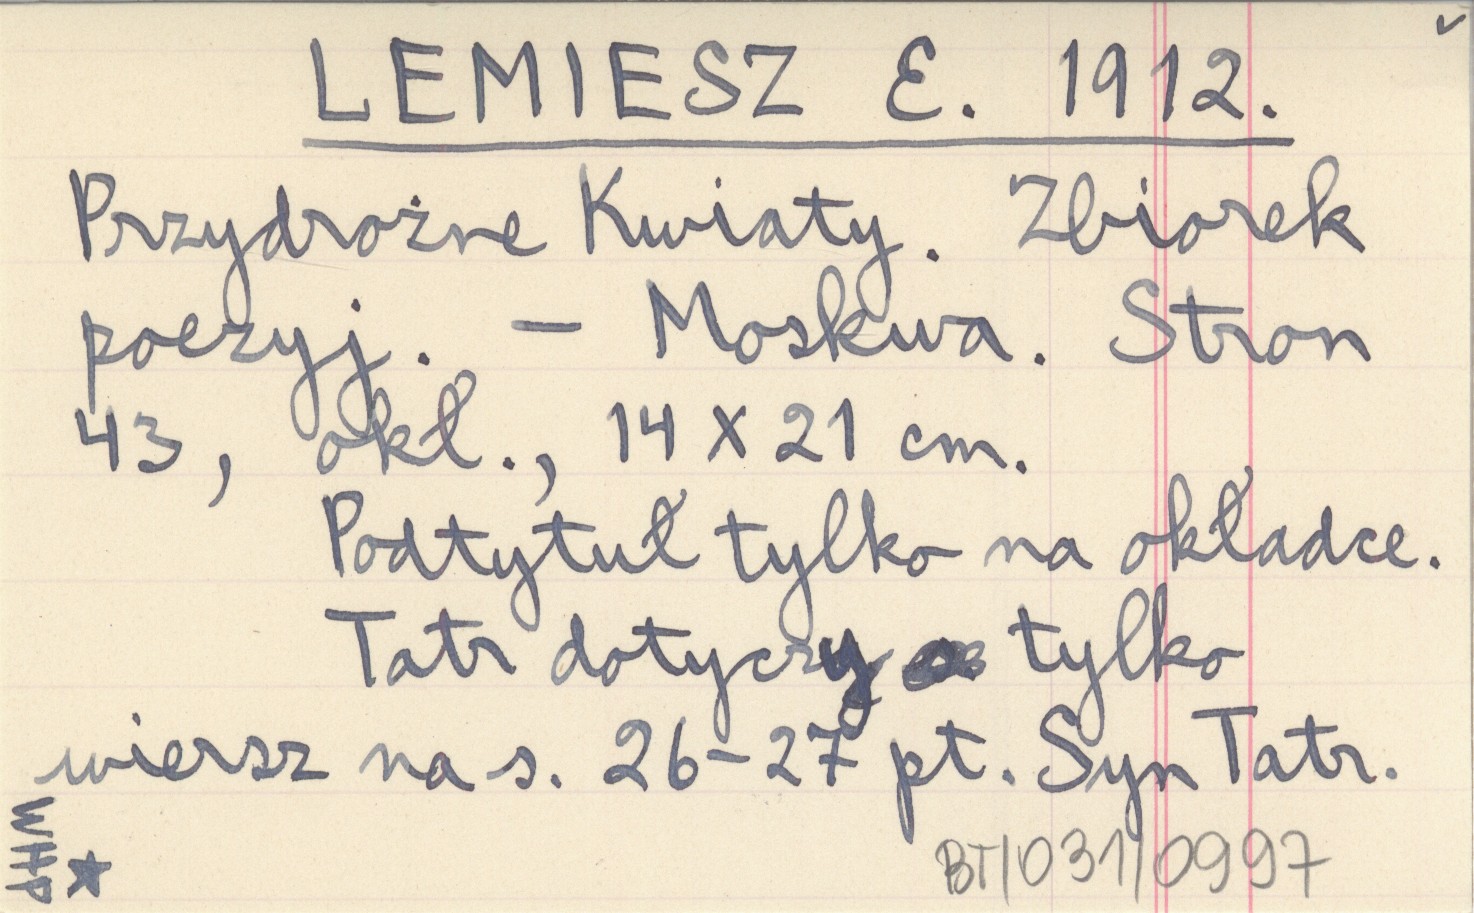 LEMIESZ E. 1912.
Przydrożne Kwiaty. Zbiorek
poezyj. — Moskwa. Stron
43, okł., 14 x 21 cm.
Podtytuł tylko na okładce.
Tatr dotyczy tylko
wiersz na s. 26-27 pt. Syn Tatr.
WHP
BT/031/0997